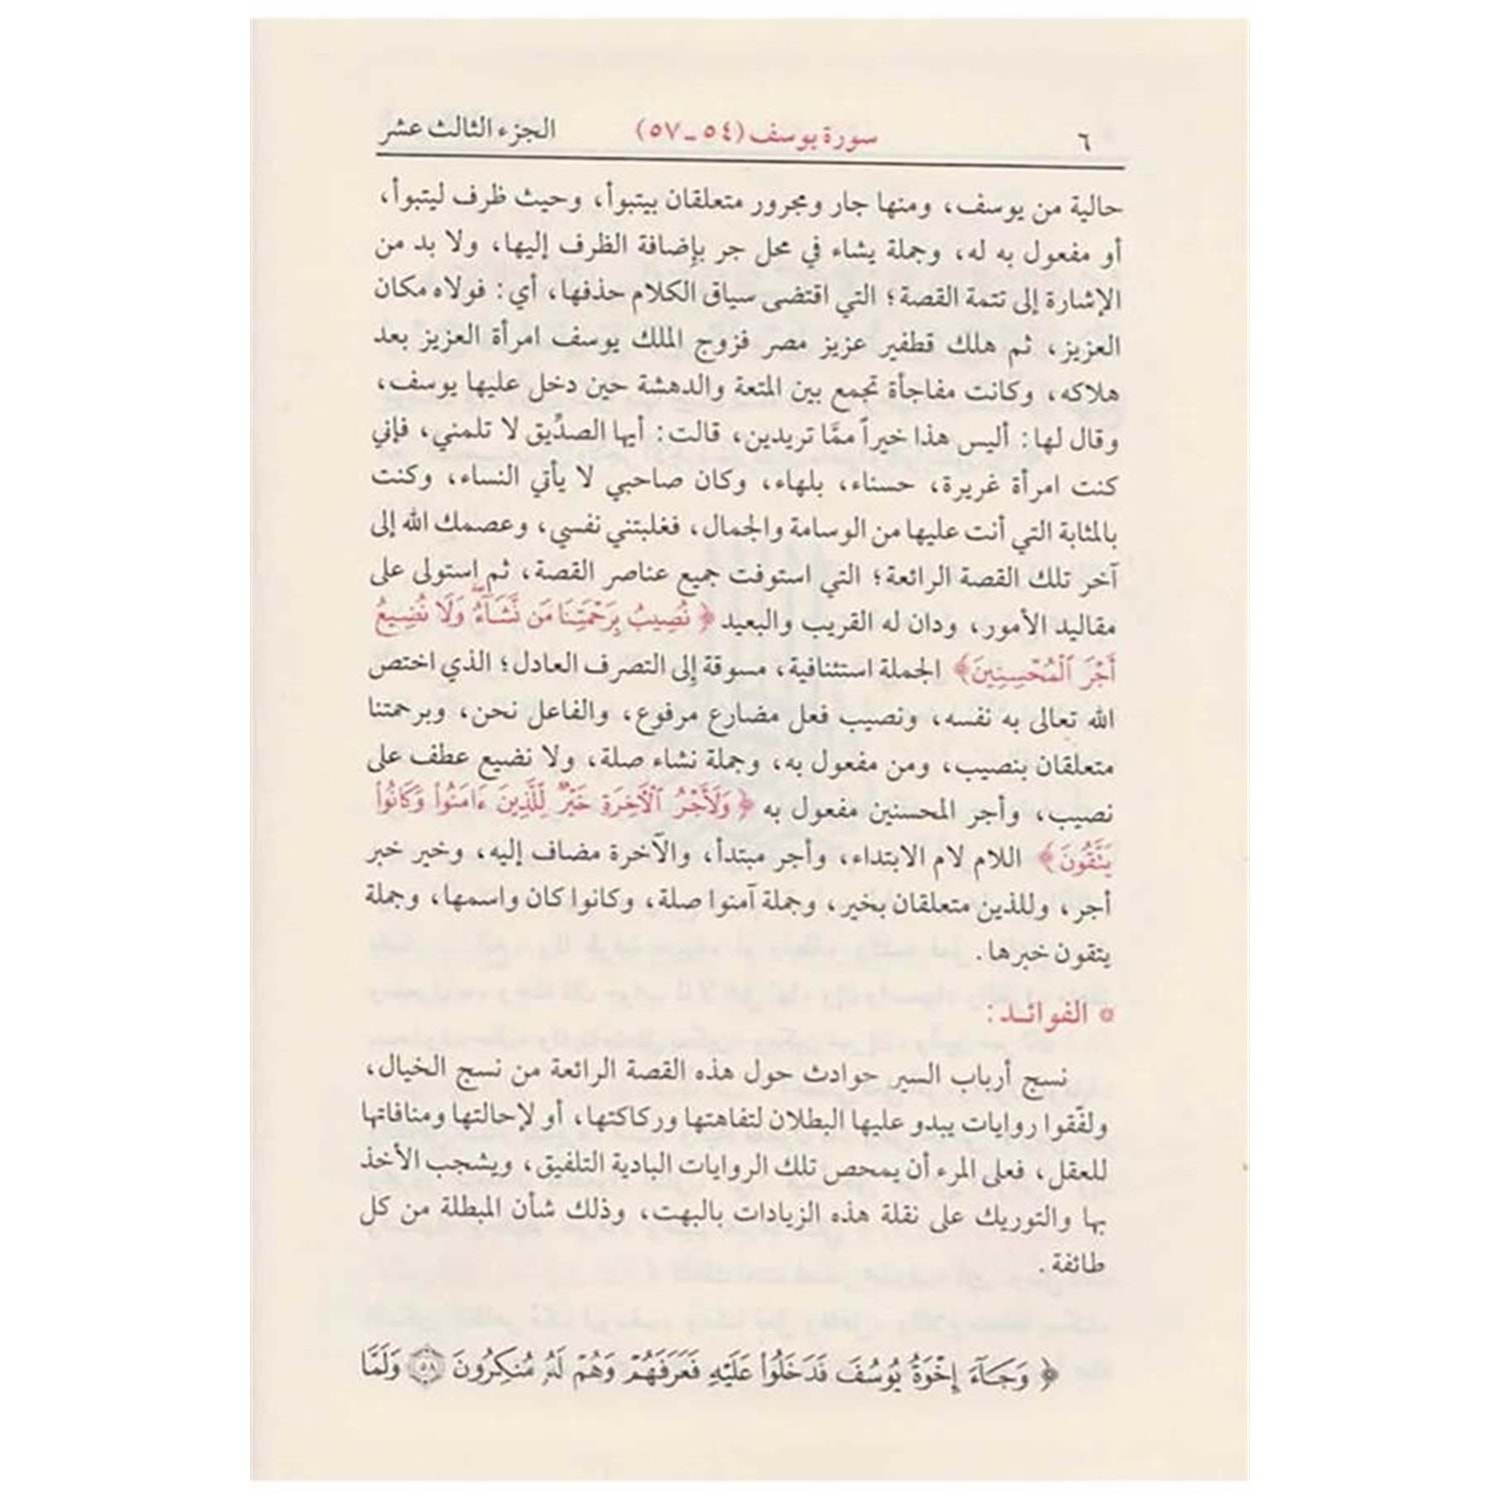 ٦ سورة يوسف (٥٤-٥٧) الجزء الثالث عشر
حالية من يوسف، ومنها جار ومجرور متعلقان بيتبوأ، وحيث ظرف ليتبوأ،
أو مفعول به له، وجملة يشاء في محل جر بإضافة الظرف إليها، ولا بد من
الإشارة إلى تتمة القصة؛ التي اقتضى سياق الكلام حذفها، أي: فولاه مكان
العزيز، ثم هلك قطفير عزيز مصر فزوج الملك يوسف امرأة العزيز بعد
هلاكه، وكانت مفاجأة تجمع بين المتعة والدهشة حين دخل عليها يوسف،
وقال لها: أليس هذا خيراً ممَّا تريدين، قالت: أيها الصدِّيق لا تلمني، فإني
كنت امرأة غريرة، حسناء، بلهاء، وكان صاحبي لا يأتي النساء، وكنت
بالمثابة التي أنت عليها من الوسامة والجمال، فغلبتني نفسي، وعصمك الله إلى
آخر تلك القصة الرائعة؛ التي استوفت جميع عناصر القصة، ثم استولى على
مقاليد الأمور، ودان له القريب والبعيد ﴿ نُصِيبُ بِرَحْمَتِنَا مَن نَّشَآءُ وَلَا نُضِيعُ
أَجْرَ ٱلْمُحْسِنِينَ﴾ الجملة استئنافية، مسوقة إلى التصرف العادل؛ الذي اختص
الله تعالى به نفسه، ونصيب فعل مضارع مرفوع، والفاعل نحن، وبرحمتنا
متعلقان بنصيب، ومن مفعول به، وجملة نشاء صلة، ولا نضيع عطف على
نصيب، وأجر المحسنين مفعول به ﴿وَلَأَجْرُ ٱلْآخِرَةِ خَيْرٌ لِّلَّذِينَ ءَامَنُوا۟ وَكَانُوا۟
يَتَّقُونَ﴾ اللام لام الابتداء، وأجر مبتدأ، والآخرة مضاف إليه، وخير خبر
أجر، وللذين متعلقان بخير، وجملة آمنوا صلة، وكانوا كان واسمها، وجملة
يتقون خبرها.
* الفوائد:
نسج أرباب السير حوادث حول هذه القصة الرائعة من نسج الخيال،
ولفّقوا روايات يبدو عليها البطلان لتفاهتها وركاكتها، أو لإحالتها ومنافاتها
للعقل، فعلى المرء أن يمحص تلك الروايات البادية التلفيق، ويشجب الأخذ
بها والتوريك على نقلة هذه الزيادات بالبهت، وذلك شأن المبطلة من كل
طائفة.
﴿ وَجَآءَ إِخْوَةُ يُوسُفَ فَدَخَلُوا۟ عَلَيْهِ فَعَرَفَهُمْ وَهُمْ لَهُۥ مُنكِرُونَ ٥٨ وَلَمَّا